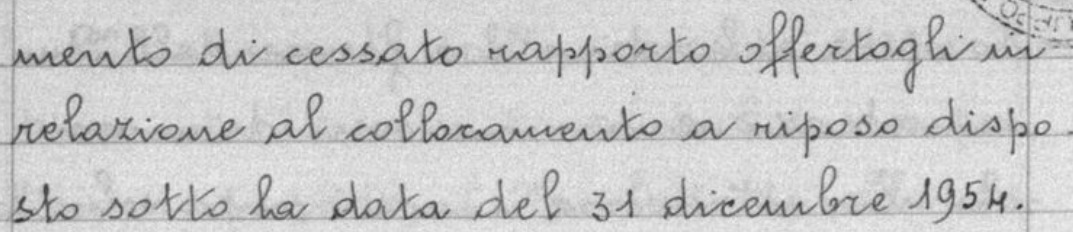 mento di cessato rapporto offertogli in
relazione al collocamento a riposo dispo-
sto sotto la data del 31 dicembre 1954.